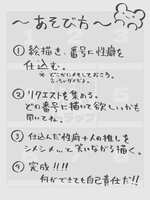 〜あそびカ〜
① 絵描き、番号に性癖を
仕込む。
※どこかにメモしておこう。
② リクエストを集める。
どの番号に描いて欲しいかも
聞いてね。
③ 仕込んだ性癖+人の推しを
シメシメ…と笑いながら描く。
④ 完成!!!!
何ができても自己責任だ!!